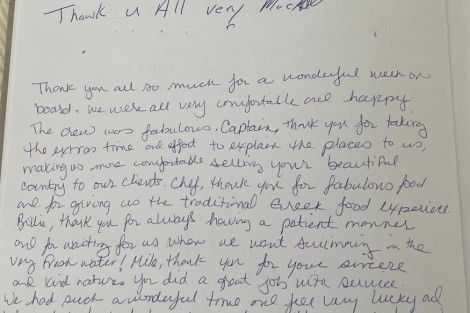 Thank u All very Much
Thank you all so much for a wonderful week on
board. We were all very comfortable and happy.
The crew was fabulous. Captain, thank you for taking
the extras time and effort to explain the places to us,
making us more comfortable selling your beautiful
country to our clients. Chef, thank you for fabulous food
and for giving us the traditional Greek food experience
Billie, thank you for always having a patient manner
and for waiting for us when we went swimming in the
very fresh water! Mila, thank you for your sincere
and kind nature. You did a great job with service.
We had such a wonderful time and feel very lucky